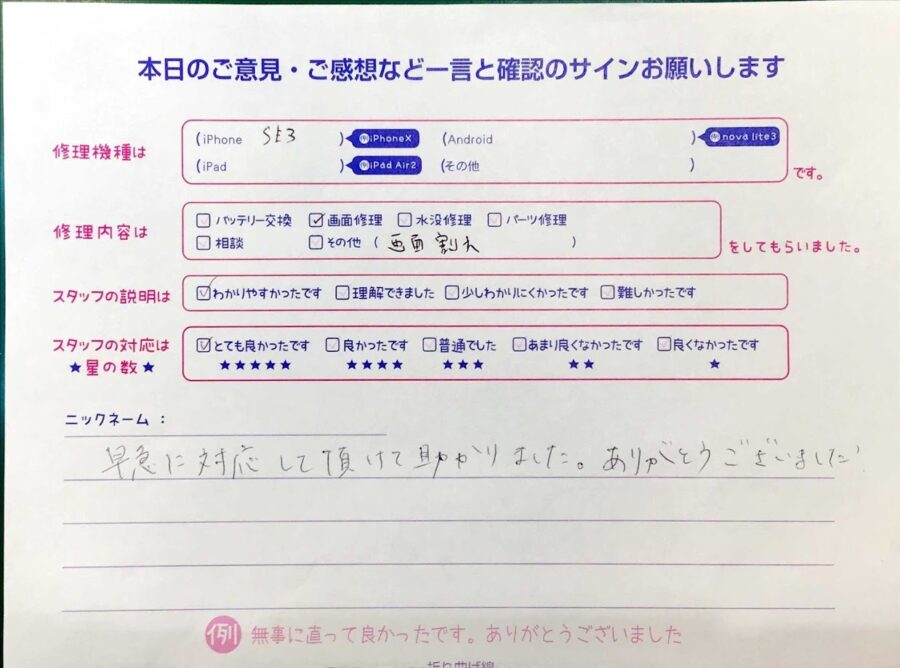 本日のご意見・ご感想など一言と確認のサインお願いします
修理機種は (iPhone SE3 ) iPhoneX (Android ) nova lite3
(iPad ) iPad Air2 (その他 ) です。
修理内容は □バッテリー交換 ☑画面修理 □水没修理 □パーツ修理
□相談 □その他 ( 画面割れ ) をしてもらいました。
スタッフの説明は ☑わかりやすかったです □理解できました □少しわかりにくかったです □難しかったです
スタッフの対応は ☑とても良かったです □良かったです □普通でした □あまり良くなかったです □良くなかったです
★星の数★ ★★★★★ ★★★★ ★★★ ★★ ★
ニックネーム :
早急に対応して頂けて助かりました。ありがとうございました
例 無事に直って良かったです。ありがとうございました
折り曲げ線